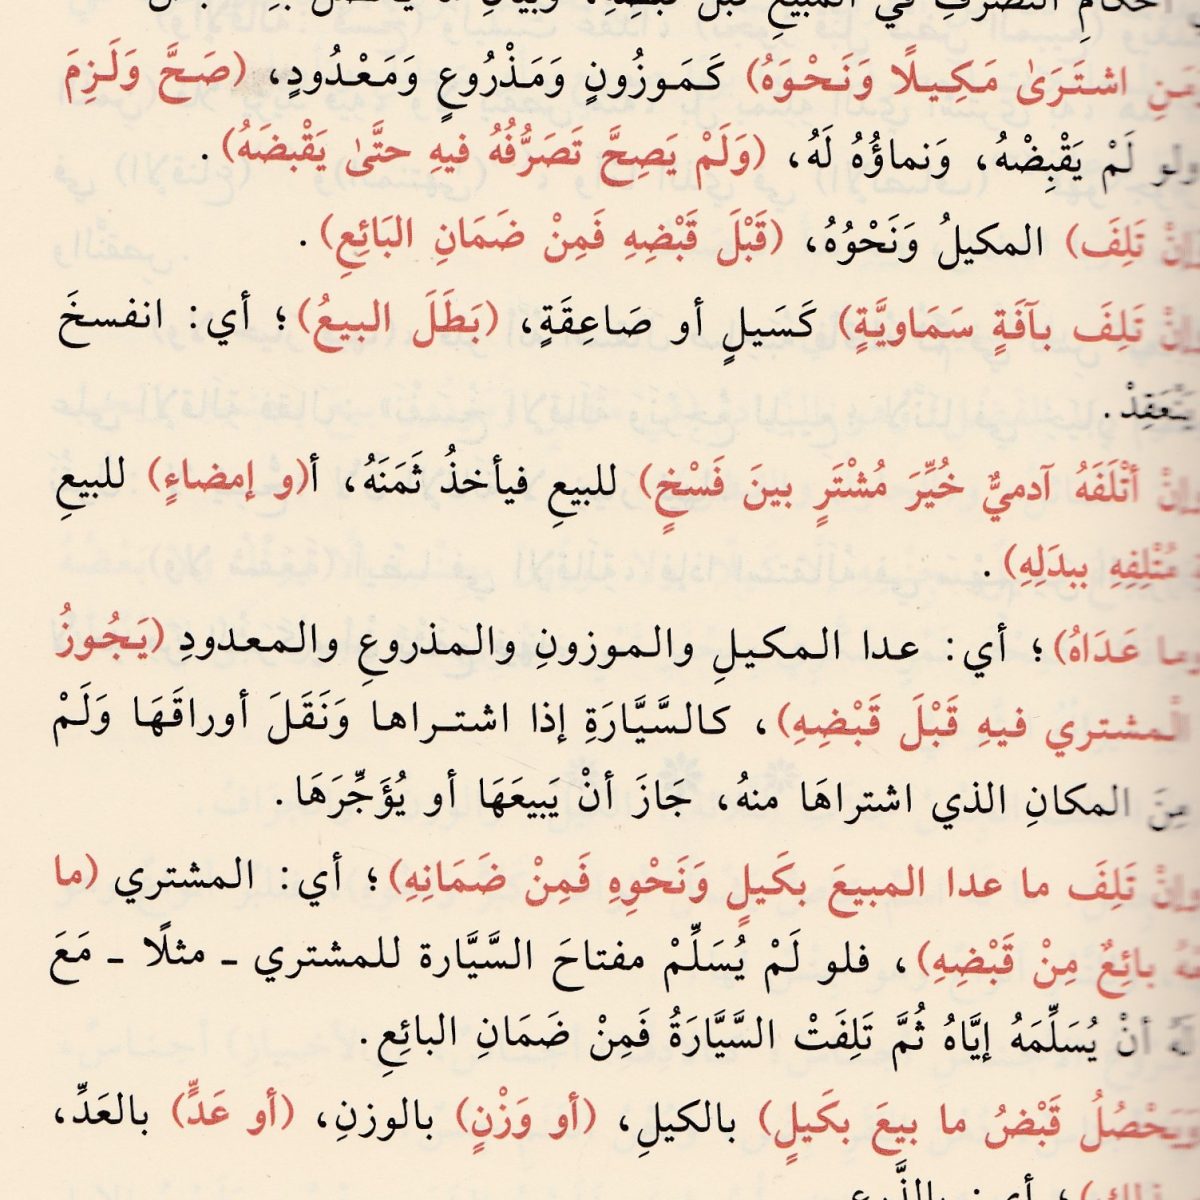 أحكام التصرف في المبيع قبل قبضه، وبيان ما
مَنِ اشتَرَىٰ مَكِيلًا وَنَحْوَهُ) كَمَوزُونٍ وَمَذْرُوعٍ وَمَعْدُودٍ، (صَحَّ وَلَزِمَ
ولو لَمْ يَقْبِضْهُ، وَنماؤُهُ لَهُ، (وَلَمْ يَصِحَّ تَصَرُّفُهُ فيهِ حتَّىٰ يَقْبضَهُ).
إنْ تَلِفَ) المكيلُ وَنَحْوُهُ، (قَبْلَ قَبْضِهِ فَمِنْ ضَمَانِ البَائِعِ).
إنْ تَلِفَ بآفَةٍ سَمَاويَّةٍ) كَسَيلٍ أو صَاعِقَةٍ، (بَطَلَ البيعُ)؛ أي: انفسخَ
يَنْعَقِدْ.
إنْ أتْلَفَهُ آدميٌّ خُيِّرَ مُشْتَرٍ بينَ فَسْخٍ) للبيعِ فيأخذُ ثَمَنَهُ، أ(و إمضاءٍ) للبيعِ
مُتْلِفِهِ ببدَلِهِ).
وما عَدَاهُ)؛ أي: عدا المكيلِ والموزونِ والمذروعِ والمعدودِ (يَجُوزُ
الْمشتري فيهِ قَبْلَ قَبْضِهِ)، كالسَّيَّارَةِ إذا اشتراها وَنَقَلَ أوراقَهَا وَلَمْ
مِنَ المكانِ الذي اشتراهَا منهُ، جَازَ أنْ يَبيعَهَا أو يُؤَجِّرَهَا.
وإنْ تَلِفَ ما عدا المبيعَ بكَيلٍ وَنَحْوِهِ فَمِنْ ضَمَانِهِ)؛ أي: المشتري (ما
بائِعٌ مِنْ قَبْضِهِ)، فلو لَمْ يُسَلِّمْ مفتاحَ السَّيَّارة للمشتري ـ مثلًا ـ مَعَ
لَهُ أنْ يُسَلِّمَهُ إيَّاهُ ثُمَّ تَلِفَتْ السَّيَّارَةُ فَمِنْ ضَمَانِ البائِعِ.
وَيَحْصُلُ قَبْضُ ما بيعَ بكَيلٍ) بالكيلِ، (أو وَزْنٍ) بالوزنِ، (أو عَدٍّ) بالعَدِّ،
؛ أي: بالذَّرع